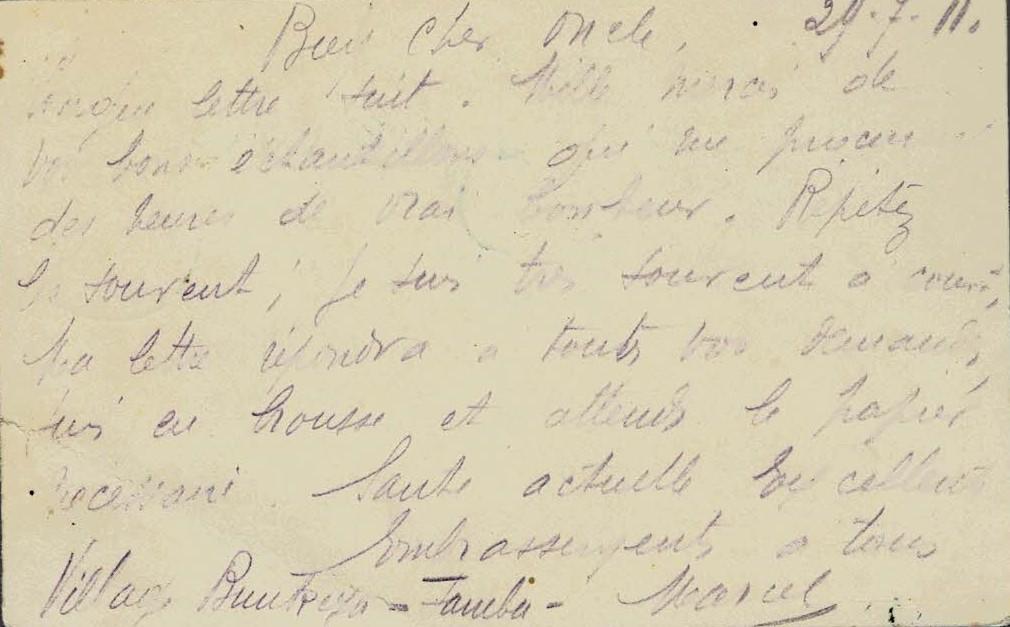 Bien cher Oncle, 29-7-11.
Longue lettre suit. Mille mercis de
vos bons échantillons qui me procur
des heures de vrai bonheur. Répétez
le souvent, je suis très souvent a court,
Ma lettre répondra a toutes vos demandes,
suis en brousse et attends le papier
necessaire. Santé actuelle Excellente
Embrassements a tous
Village - Tamba - Marcel